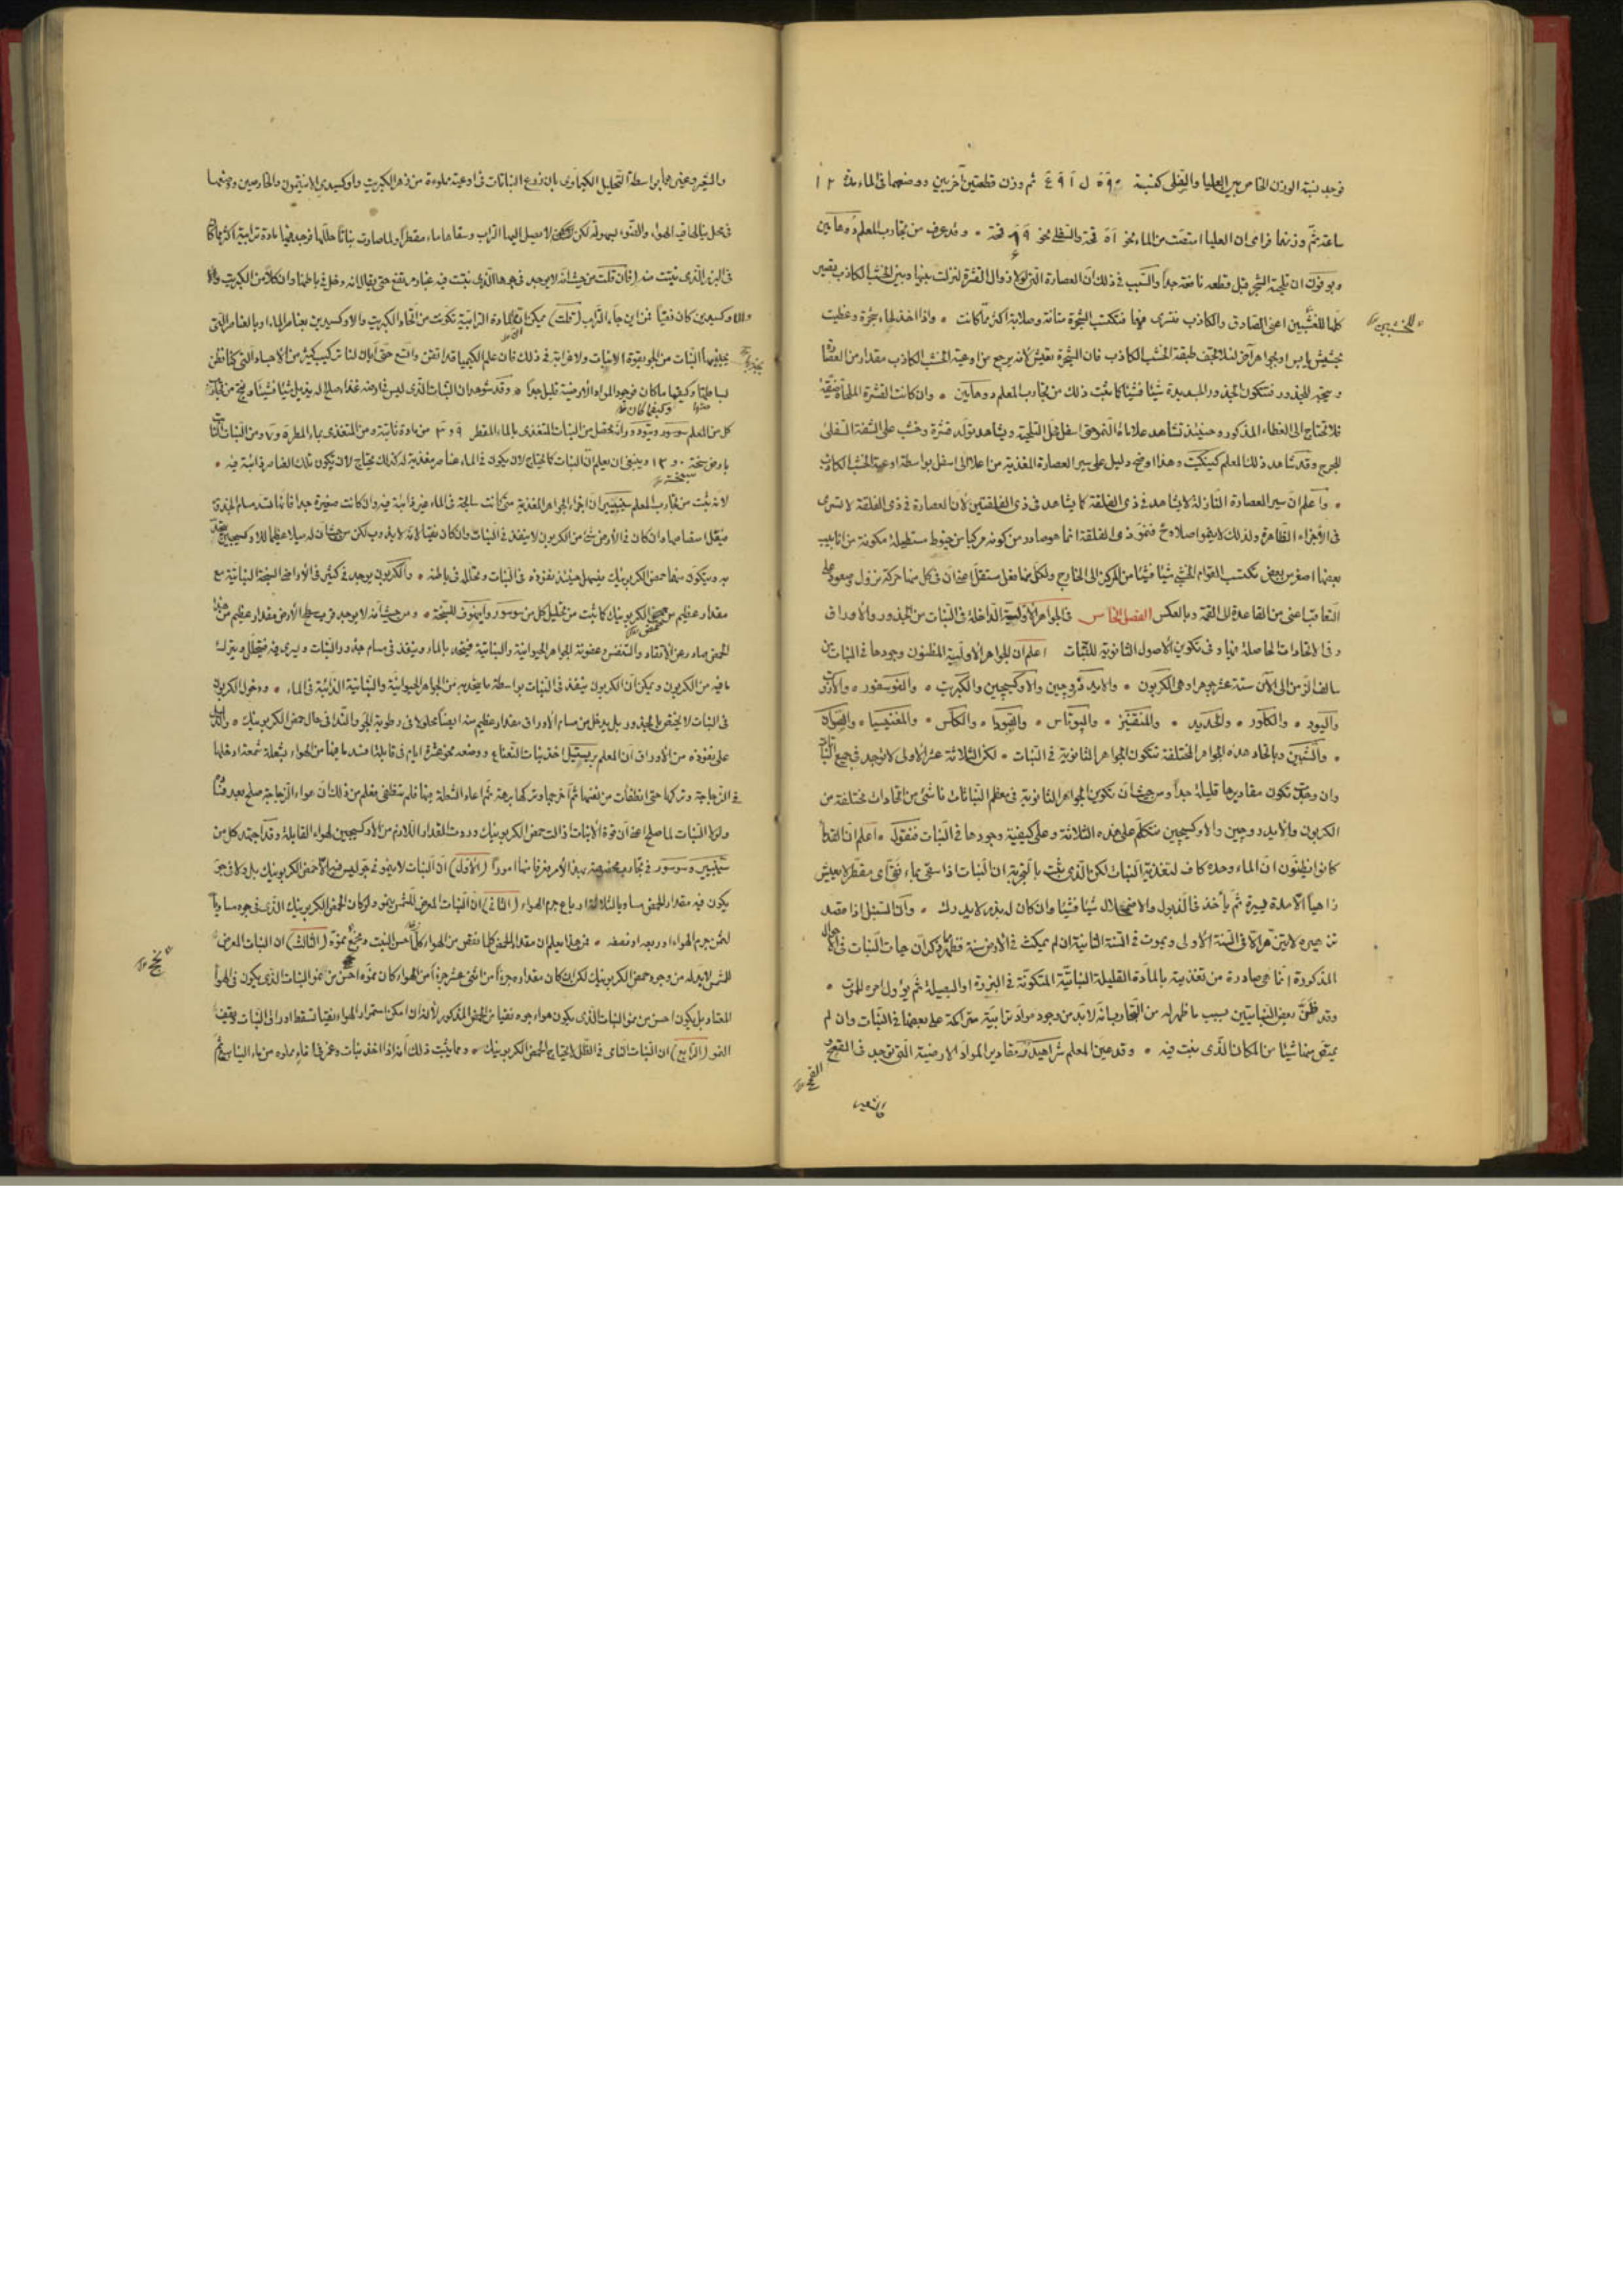 فوجد نسبة الوزن الخاص بين العليا والسفلى كنسبة ثم وزن قطعتين اخريين ووضعهما فى الماء مدة ١٢
ساعة ثم وزنهما فراى ان العليا امتصت من الماء نحو ٥١ قمحة والسفلى نحو قمحة • وقد عرف من تجارب المعلم دوهامين
وبوفون ان تلحية الشجر قبل قطعه نافعة جداً والسبب فى ذلك ان العصارة التى لولا زوال القشرة لنزلت بينها وبين الخشب الكاذب تصير
كلها للخشبين اعنى الصادق والكاذب فتسرى فيهما فتكتسب الشجرة متانة وصلابة اكثر مما كانت • واذا اخذ لحاء شجرة وغطيت
بحشيش يابس او بجواهر آخر لئلا تجف طبقة الخشب الكاذب فان الشجرة تعيش لانه يرجع من اوعية الخشب الكاذب مقدار من العصارة
ويتجه للجذور فتتكون الجذور الجديدة شيئا فشيئا كما ثبت ذلك من تجارب المعلم دوهامين • وان كانت القشرة الملحاة ضيقة
فلا تحتاج الى الغطاء المذكور وحينئذ تشاهد علامات النمو حتى اسفل محل التلحية ويشاهد تولد قشرة وخشب على الشفة السفلى
للجرح وقد شاهد ذلك المعلم وهذا اوضح دليل على سير العصارة المغذية من اعلا الى اسفل بواسطة اوعية الخشب الكاذب
• واعلم ان سير العصارة النازلة لا يشاهد فى ذى الفلقة كما يشاهد فى ذى الفلقتين لان العصارة فى ذى الفلقة لا تسرى
فى الاجزاء الظاهرة ولذلك لا ينمو اصلا و فنمو ذى الفلقة انما هو صادر من كونه مركبا من خيوط مستطيلة مكونة من انابيب
بعضها اصغر من بعض تكتسب القوام الخشبى شيئا فشيئا من المركز الى الخارج ولكل منها فعل مستقل اعنى ان فى كل منها حركة نزول وصعود على
التعاقب اعنى من القاعدة الى القمة وبالعكس الفصل الخامس فى الجواهر الاولية الداخلة فى النبات من الجذور والاوراق
وفى الاتحادات الحاصلة فيها وفى تكوين الاصول الثانوية للنبات اعلم ان الجواهر الاولية المظنون وجودها فى النبات من
سالف الزمن الى الآن ستة عشر جوهرا وهى الكربون • والايدروجين والاوكسيجين والكبريت • والفوسفور • والازوت
واليود • والكلور • والحديد • والمنقنيز • والپوتاس • والصودا • والكلس • والمغنيسيا • والصوان
• والشبين وباتحاد هذه الجواهر المختلفة تتكون الجواهر الثانوية فى النبات • لكن الثلاثة عشر الاولى لا توجد فى جميع النبات
وان وجدت تكون مقاديرها قليلة جداً ومن حيث ان تكوين الجواهر الثانوية فى معظم النباتات ناشئ من اتحادات مختلفة من
الكربون والايدروجين والاوكسيجين فنتكلم على هذه الثلاثة وعلى كيفية وجودها فى النبات فنقول • اعلم ان القدماء
كانوا يظنون ان الماء وحده كاف لتغذية النبات لكن الذى ثبت بالتجربة ان النبات اذا سقى بماء نقى اى مقطر لا يعيش
زاهياً الا مدة يسيرة ثم يأخذ فى الذبول والاضمحلال شيئا فشيئا وان كان له بذر لا يدرك • واما السنبل اذا قصد
تزهيره لا يتزهر الا فى السنة الاولى ويموت فى السنة الثانية ان لم يمكث فى الارض سنة فظهر مما ذكر ان حيات النبات فى الاحوال
المذكورة انما هى صادرة من تغذيته بالمادة القليلة النباتية المتكونة فى البزرة او البصيلة ثم يؤول امره للموت •
وقد ظن بعض النباتيين بسبب ما ظهر له من التجاريب انه لا بد من وجود مواد ترابية متراكمة على بعضها فى النبات وان لم
يمتص منها شيئا من المكان الذى ينبت فيه • وقد عين المعلم مقادير المواد الارضية التى توجد فى القمح
والشعير
للخشبين
والشعير وغيرهما بواسطة التحليل الكيماوى بان زرع النباتات فى اوعية مملوءة من زهر الكبريت واوكسيدى الانتيمون والخارصين ووضعها
فى محل يأتى لها فيه الهواء والضوء بسهولة لكن لا يصل اليها التراب وسقاها ماء مقطراً ولما صارت نباتاً حللها فوجد فيها مادة ترابية اكثر مما كان
فى البزر الذى نبتت منه (فان قلت) من حيث انه لا يوجد فى جوهر الذى نبتت فيه غبار مرتفع حتى يقال انه دخل فى باطنها وان كلا من الكبريت والا
والاوكسيدين كان نقياً فمن اين جاء التراب (قلت) يمكن ان المادة الترابية تكونت من اتحاد الكبريت والاوكسيدين بعناصر الماء او بالعناصر التى
يجذبها النبات من الجو بقوة الانبات ولا غرابة فى ذلك فان علم الكيميا قد اتقن واتسع حتى ابان لنا تركيب كثير من الاجساد التى كنا نظن
بساطتها وكيفما كان فوجود المواد الارضية قليل جدا • وقد شوهد ان النبات الذى ليس فى ارضه غذاء صالح له يذبل شيئا فشيئا ونتج من تجارب
كل من المعلم سوسور و انه يحصل من النبات المتغذى بالماء المقطر من مادة ثابتة ومن المتغذى بماء المطر ومن النبات النابت
بارض سبخة وينبغى ان يعلم ان النبات كما يحتاج لان يكون فى الماء عناصر مغذية له كذلك يحتاج لان تكون تلك العناصر ذائبة فيه •
لانه ثبت من تجارب المعلم سينبيير ان اجزاء الجواهر المغذية متى كانت سابحة فى الماء غير ذائبة فيه وان كانت صغيرة جدا فانها تسد مسام الجذور
فيقل امتصاصها وان كان فى الارض شئ من الكربون لا ينفذ فى النبات وان كان نقيا لانه لا يذوب لكن من حيث ان له ميلا عظيما للاوكسيجين يتحد
به ويتكون منهما حمض الكربونيك فيسهل حينئذ نفوذه فى النبات ويتحلل فى باطنه • والكربون يوجد فى كثير فى الاراضى السبخة النباتية مع
مقدار عظيم من حمض الكربونيك كما ثبت من تحليل كل من سوسور و للسبخة • ومن حيث انه لا يوجد قرب سطح الارض مقدار عظيم من هذا
الحمض صادر عن الاتقاد والتنفس وعفونة الجواهر الحيوانية والنباتية فيتحد بالماء وينفذ فى مسام جذور النبات ويسرى فيه فيتحلل ويترك
ما فيه من الكربون ويمكن ان الكربون ينفذ فى النبات بواسطة ما يتحد به من الجواهر الحيوانية والنباتية الذائبة فى الماء • ودخول الكربون
فى النبات لا يختص بالجذور بل يدخل من مسام الاوراق مقدار عظيم منه ايضا محلولا فى رطوبة الجو والندا فى حال حمض الكربونيك • والدليل
على نفوذه من الاوراق ان المعلم بريستيل اخذ نبات النعناع ووضعه نحو عشرة ايام فى قابلة افسد ما فيها من الهواء بشعلة شمعة ادخلها
فى الزجاجة وتركها حتى انطفأت من نفسها ثم اخرجها وتركها برهة ثم اعاد الشعلة فيها فلم تنطفئ فعلم من ذلك ان هواء الزجاجة صلح بعد فساده
ولولا النبات لما صلح اعنى ان قوة الانبات ازالت حمض الكربونيك وردت المقدار اللازم من الاوكسيجين لهواء القابلة وقد اجتهد كل من
سينبيير وسوسور فى تجاربه بهذا الامر فعرفا منها امورا (الاول) ان النبات لا ينمو فى جو ليس فيه الا حمض الكربونيك بل ولا فى جو
يكون فيه مقدار الحمض مساويا لثلاثة ارباع جرم الهواء (الثانى) ان النبات المعرض للشمس ينمو ولو كان الحمض الكربونيك الذى فى جوه مساوياً
لثمن جرم الهواء او ربعه او نصفه • فمن هذا يعلم ان مقدار الحمض كلما نقص من الهواء كلما احسن النبت ونجح نموه (الثالث) ان النبات المعرض
للشمس لا بد له من وجود حمض الكربونيك لكن ان كان مقداره جزءاً من اثنى عشر جزءاً من الهواء كان نموه احسن من نمو النبات الذى يكون فى الهواء
المعتاد بل يكون احسن من نمو النبات الذى يكون هواء جوه نقيا من الحمض المذكور لانه ان امكن استمرار الهواء نقيا تسقط اوراق النبات ويقف
النمو (الرابع) ان النبات النامى فى الظل لا يحتاج لحمض الكربونيك • ومما يثبت ذلك انه اذا اخذ نبات وغمر فى اناء مملوء من ماء الينابيع ثم